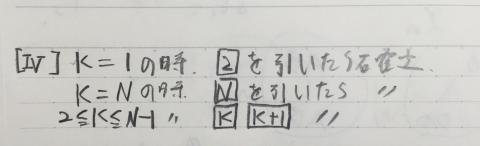 [Ⅳ] K=1の時 2を引いたら確定
K=Nの時 Nを引いたら 〃
2≦K≦N-1 〃 K K+1 〃